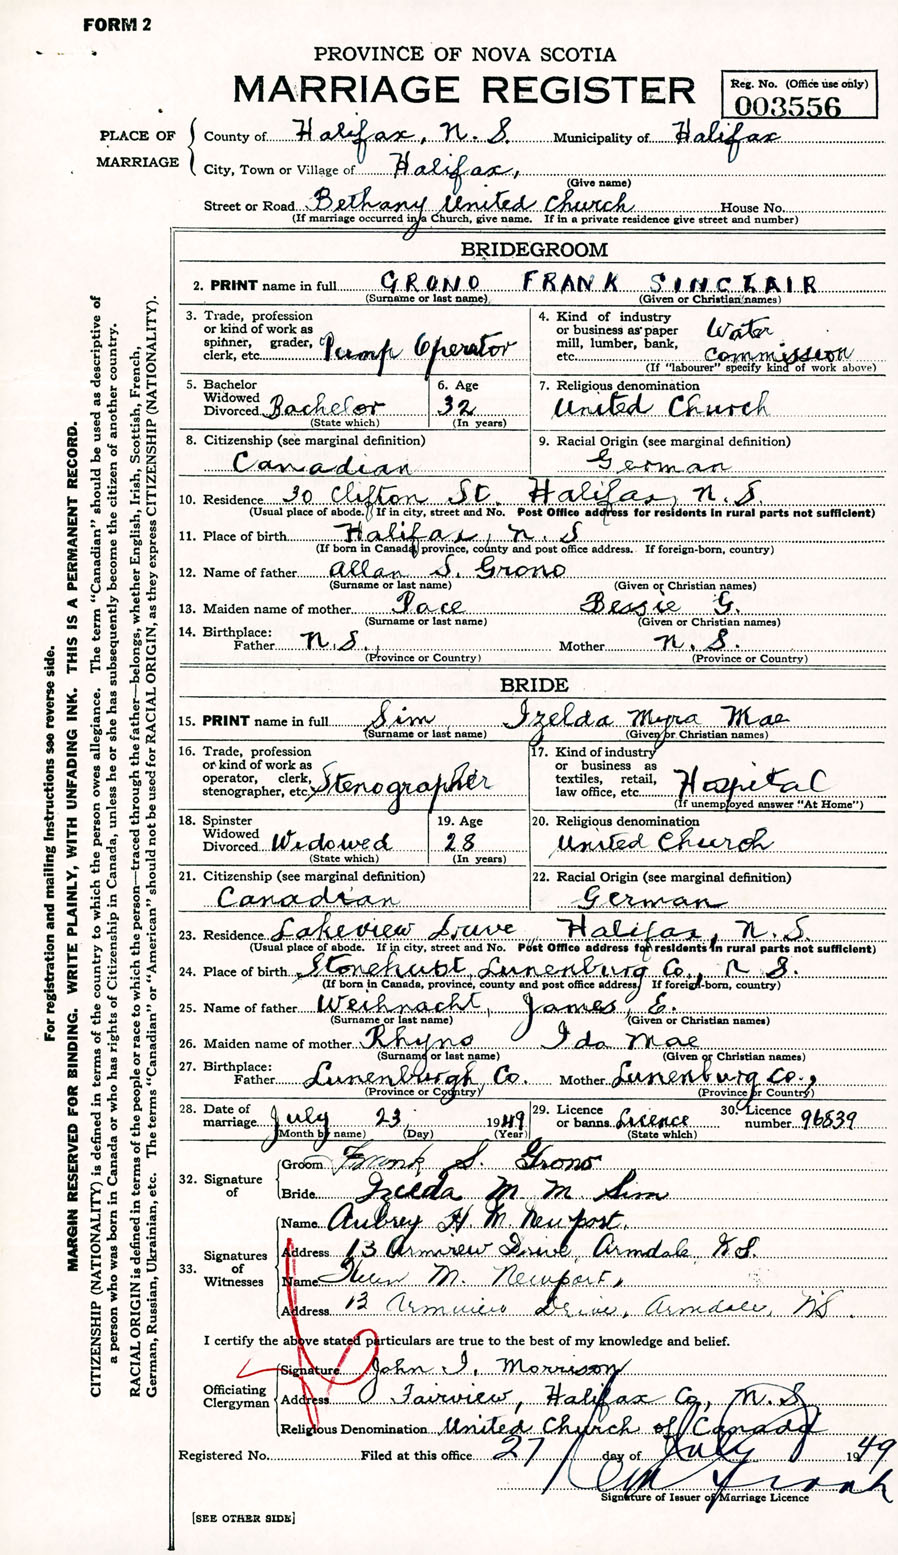 FORM 2
PROVINCE OF NOVA SCOTIA
MARRIAGE REGISTER
Reg. No. (Office use only)
003556
PLACE OF MARRIAGE
County of Halifax, N. S. Municipality of Halifax
City, Town or Village of Halifax,
(Give name)
Street or Road Bethany United Church House No.
(If marriage occurred in a Church, give name. If in a private residence give street and number)
BRIDEGROOM
2. PRINT name in full GRONO FRANK SINCLAIR
(Surname or last name) (Given or Christian names)
3. Trade, profession
or kind of work as
spinner, grader,
clerk, etc. Pump Operator
4. Kind of industry
or business as paper
mill, lumber, bank,
etc. Water
commission
(If "labourer" specify kind of work above)
5. Bachelor
Widowed
Divorced Bachelor
(State which)
6. Age
32
(In years)
7. Religious denomination
United Church
8. Citizenship (see marginal definition)
Canadian
9. Racial Origin (see marginal definition)
German
10. Residence 30 Clifton St. Halifax, N. S.
(Usual place of abode. If in city, street and No. Post Office address for residents in rural parts not sufficient)
11. Place of birth Halifax, N. S
(If born in Canada, province, county and post office address. If foreign-born, country)
12. Name of father Allan S. Grono
(Surname or last name) (Given or Christian names)
13. Maiden name of mother Pace Bessie G.
(Surname or last name) (Given or Christian names)
14. Birthplace:
Father N.S. Mother N. S.
(Province or Country) (Province or Country)
BRIDE
15. PRINT name in full Sim Izelda Myra Mae
(Surname or last name) (Given or Christian names)
16. Trade, profession
or kind of work as
operator, clerk,
stenographer, etc. Stenographer
17. Kind of industry
or business as
textiles, retail,
law office, etc. Hospital
(If unemployed answer "At Home")
18. Spinster
Widowed
Divorced Widowed
(State which)
19. Age
28
(In years)
20. Religious denomination
United Church
21. Citizenship (see marginal definition)
Canadian
22. Racial Origin (see marginal definition)
German
23. Residence Lakeview Drive, Halifax, N. S.
(Usual place of abode. If in city, street and No. Post Office address for residents in rural parts not sufficient)
24. Place of birth Stonehurst, Lunenburg Co., N. S.
(If born in Canada, province, county and post office address. If foreign-born, country)
25. Name of father Weihnacht, James E.
(Surname or last name) (Given or Christian names)
26. Maiden name of mother Rhyno Ida Mae
(Surname or last name) (Given or Christian names)
27. Birthplace:
Father Lunenburgh, Co. Mother Lunenburg Co.,
(Province or Country) (Province or Country)
28. Date of
marriage July 23, 1949
(Month by name) (Day) (Year)
29. Licence
or banns Licence
(State which)
30. Licence
number 96839
32. Signature
of
Groom Frank S. Grono
Bride Izelda M. M. Sim
33. Signatures
of
Witnesses
Name Aubrey H. M. Newport.
Address 13 Armview Drive, Armdale N.S.
Name M. Newport,
Address 13 Armview Drive, Armdale, NS.
I certify the above stated particulars are true to the best of my knowledge and belief.
Officiating
Clergyman
Signature John I. Morrison
Address Fairview, Halifax Co, N.S
Religious Denomination United Church of Canada
Registered No. Filed at this office 27 day of July 1949
Signature of Issuer of Marriage Licence
[SEE OTHER SIDE]
For registration and mailing instructions see reverse side.
MARGIN RESERVED FOR BINDING. WRITE PLAINLY, WITH UNFADING INK. THIS IS A PERMANENT RECORD.
CITIZENSHIP (NATIONALITY) is defined in terms of the country to which the person owes allegiance. The term "Canadian" should be used as descriptive of
a person who was born in Canada or who has rights of Citizenship in Canada, unless he or she has subsequently become the citizen of another country.
RACIAL ORIGIN is defined in terms of the people or race to which the person—traced through the father—belongs, whether English, Irish, Scottish, French,
German, Russian, Ukrainian, etc. The terms "Canadian" or "American" should not be used for RACIAL ORIGIN, as they express CITIZENSHIP (NATIONALITY).